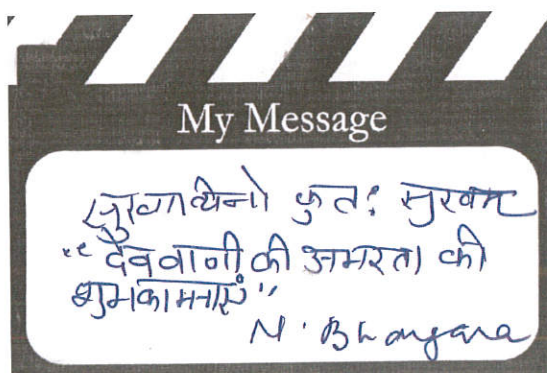 My Message
सुखार्थिनो कुतः सुखम
"देववाणी की अमरता की
शुभकामनाएं"
N. Bhangara